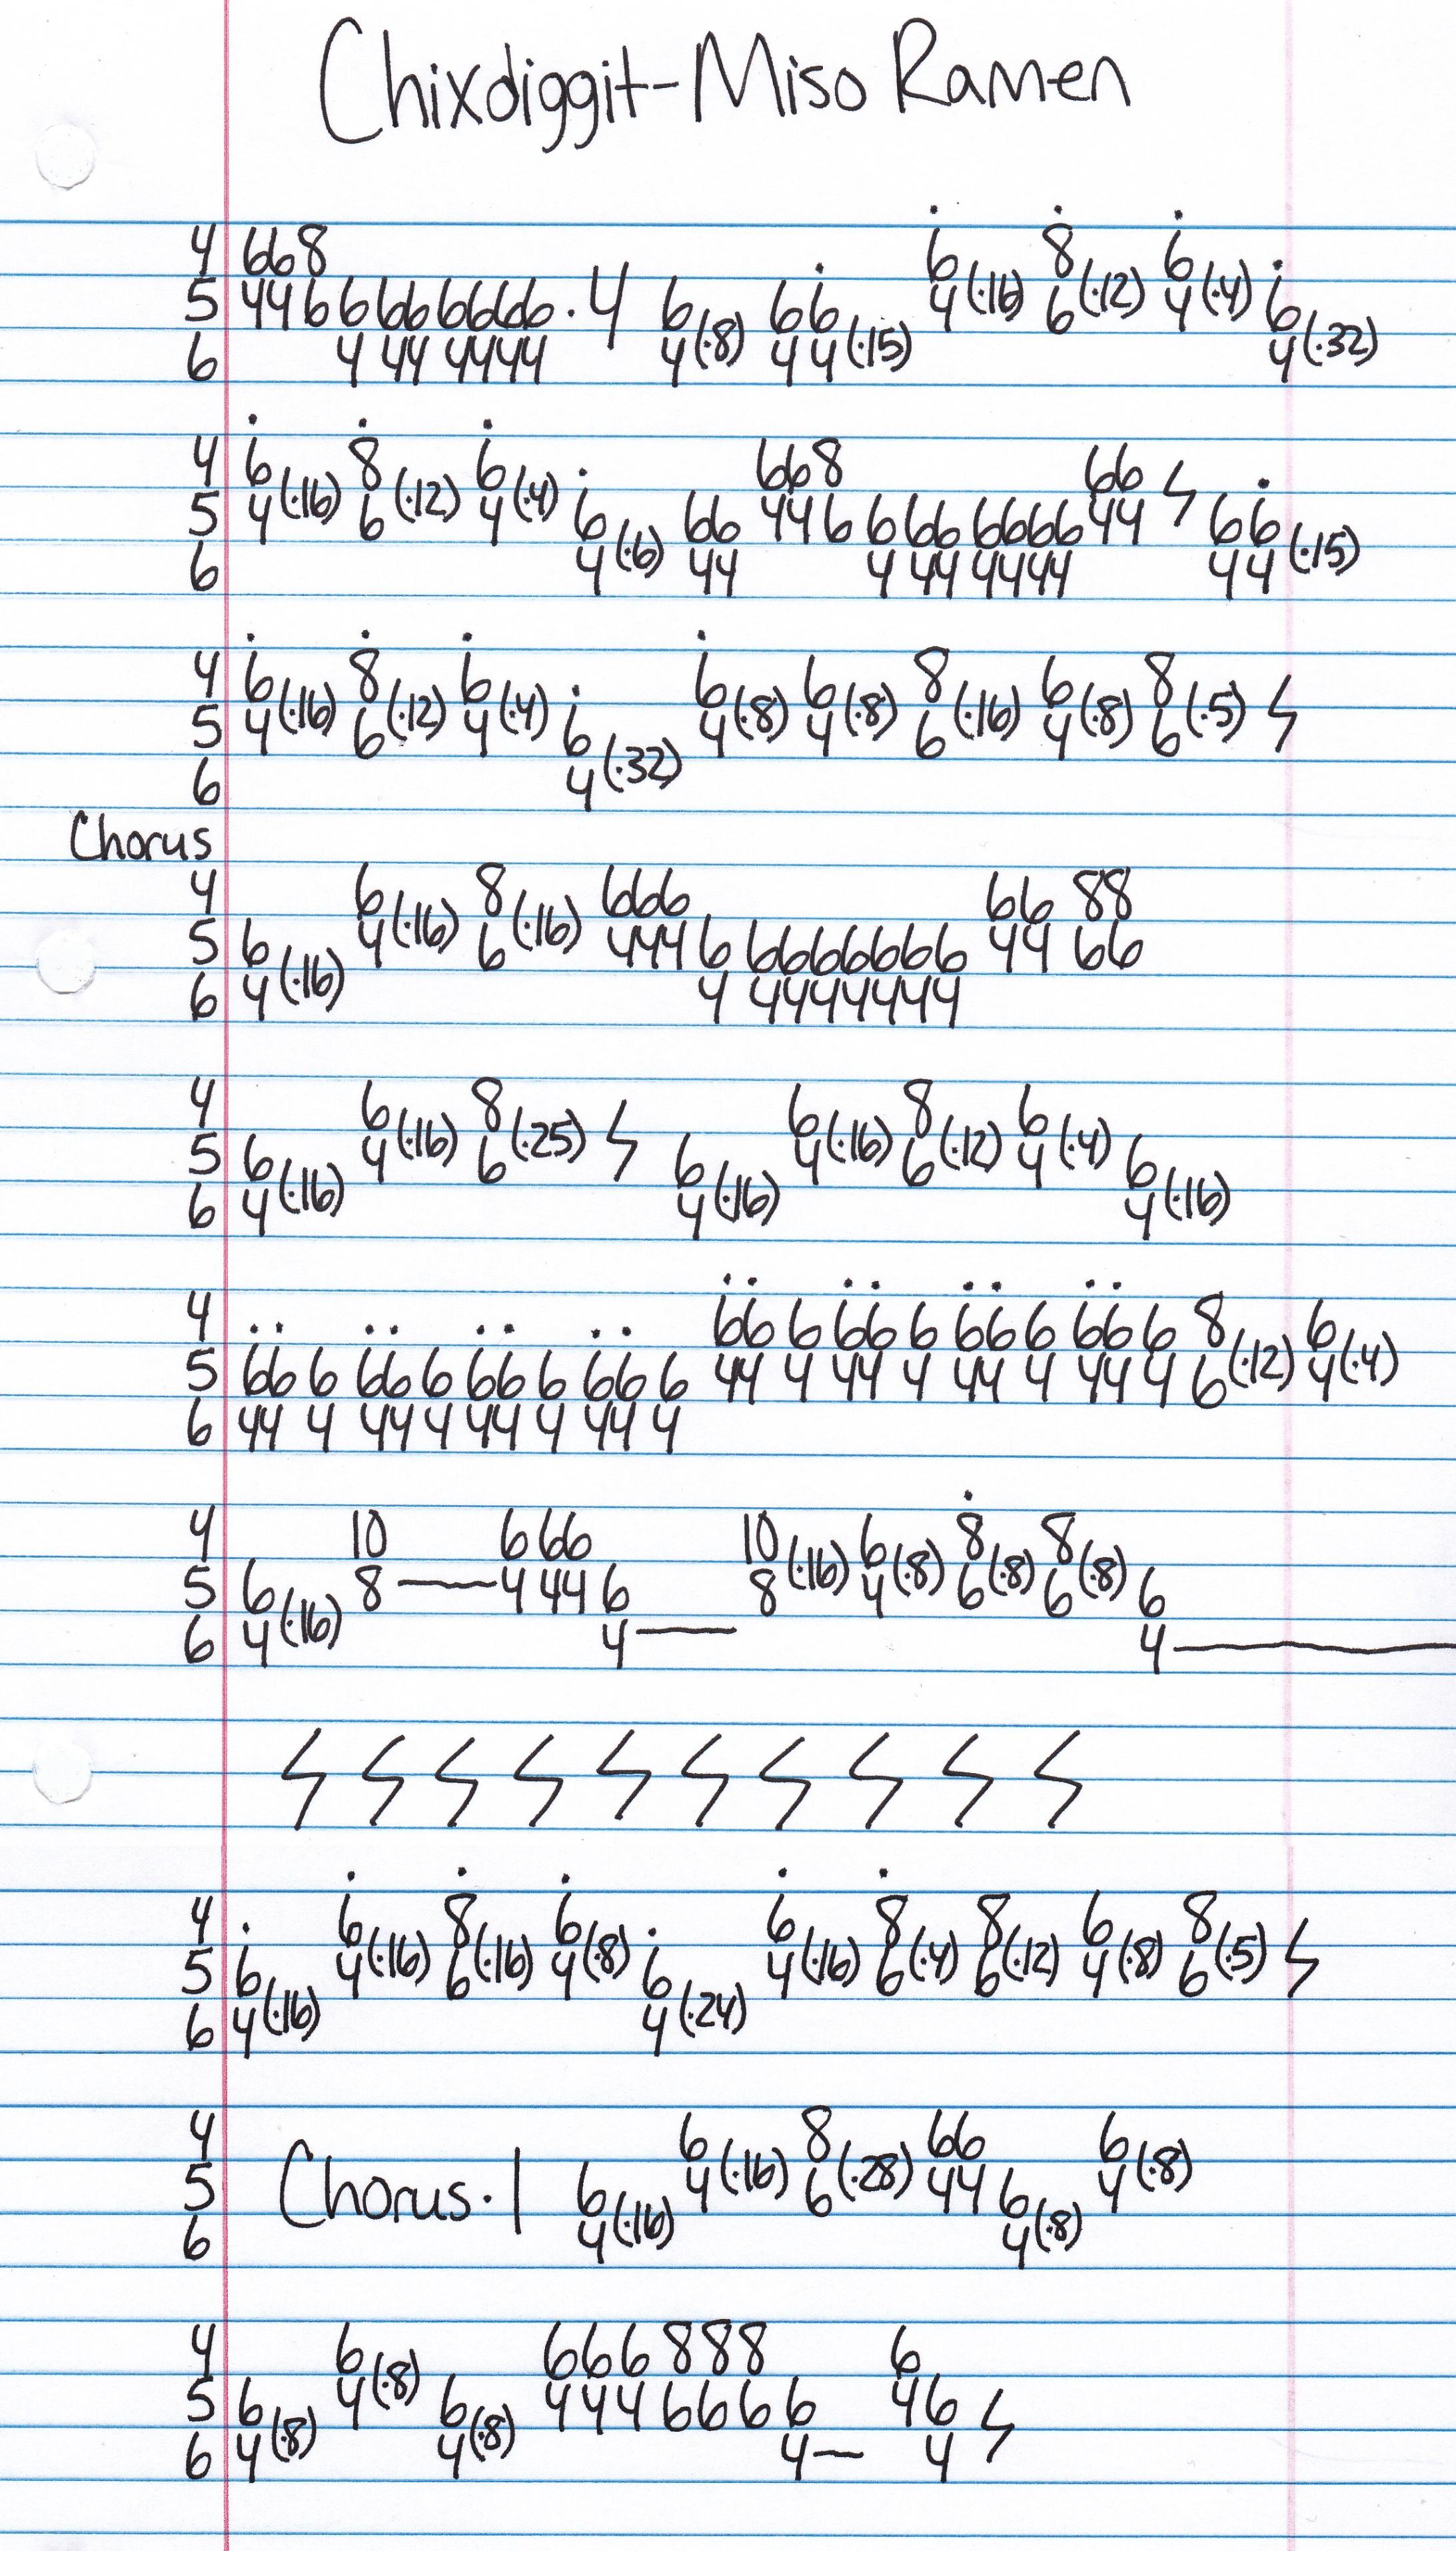 Chixdiggit-Miso Ramen
4 668
5 446 6 66 6666 .4 6 66 6 (.16) 8 (.12) 6 (.4)
6 4 44 4444 4(.8) 44(.15) 4 6 4 6 4(.32)
4 6(.16) 8(.12) 6(.4) 668 66
5 4 6 4 6 66 446 6 66 6666 44 66
6 4(.6) 44 4 44 4444 44(.15)
4 6(.16) 8(.12) 6(.4) 6(.8) 6(.8) 8(.16) 6(.8) 8(.5)
5 4 6 4 6 4 4 6 4 6
6 4(.32)
Chorus
4 6(.16) 8(.16) 666 66 88
5 6 4 6 444 6 6666666 44 66
6 4(.16) 4 4444444
4 6(.16) 8(.25) 6(.16) 8(.12) 6(.4)
5 6 4 6 6 4 6 4 6
6 4(.16) 4(.16) 4(.16)
4 66 6 66 6 66 6 66 6 8 6
5 66 6 66 6 66 6 66 6 44 4 44 4 44 4 44 4 6(.12) 4(.4)
6 44 4 44 4 44 4 44 4
4 10 6 66 10 6 8 8
5 6 8 — 4 44 6 8(.16) 4(.8) 6(.8) 6(.8) 6
6 4(.16) 4 — 4 —
4 6 8 6 6 8 8 6 8
5 6 4(.16) 6(.16) 4(.8) 6 4(.16) 6(.4) 6(.12) 4(.8) 6(.5)
6 4(.16) 4(.24)
4 6 8 66 6
5 Chorus.| 6 4(.16) 6(.28) 44 6 4(.8)
6 4(.16) 4(.8)
4 6 666888 6
5 6 4(.8) 6 444666 6 46
6 4(.8) 4(.8) 4— 4